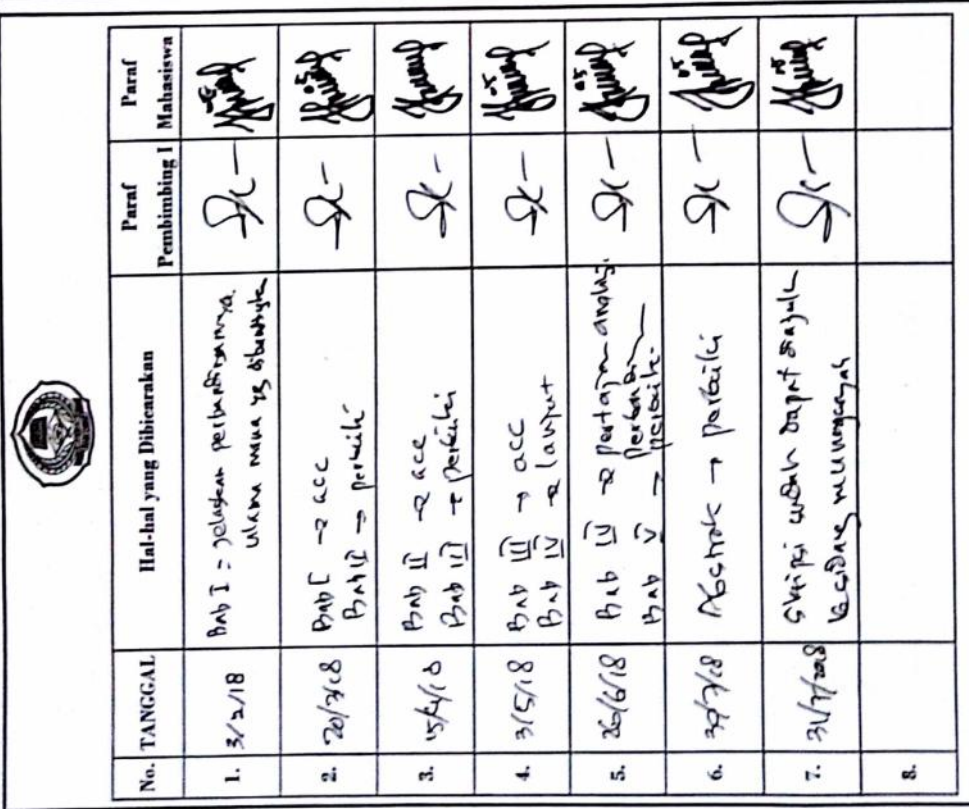 No. TANGGAL Hal-hal yang Dibicarakan Paraf Pembimbing I Paraf Mahasiswa
1. 3/2/18 Bab I = jelaskan perbandingannya.
ulama mana yg
2. 20/3/18 Bab I → acc
Bab II → perbaiki
3. 15/4/18 Bab II → acc
Bab III → perbaiki
4. 3/5/18 Bab III → acc
Bab IV → lanjut
5. 26/6/18 Bab IV → pertajam analisis
Bab V → perbaiki.
6. Abstrak → perbaiki
7. 31/7/2018 Skripsi sudah dapat diajukan
ke sidang munaqasyah
8.